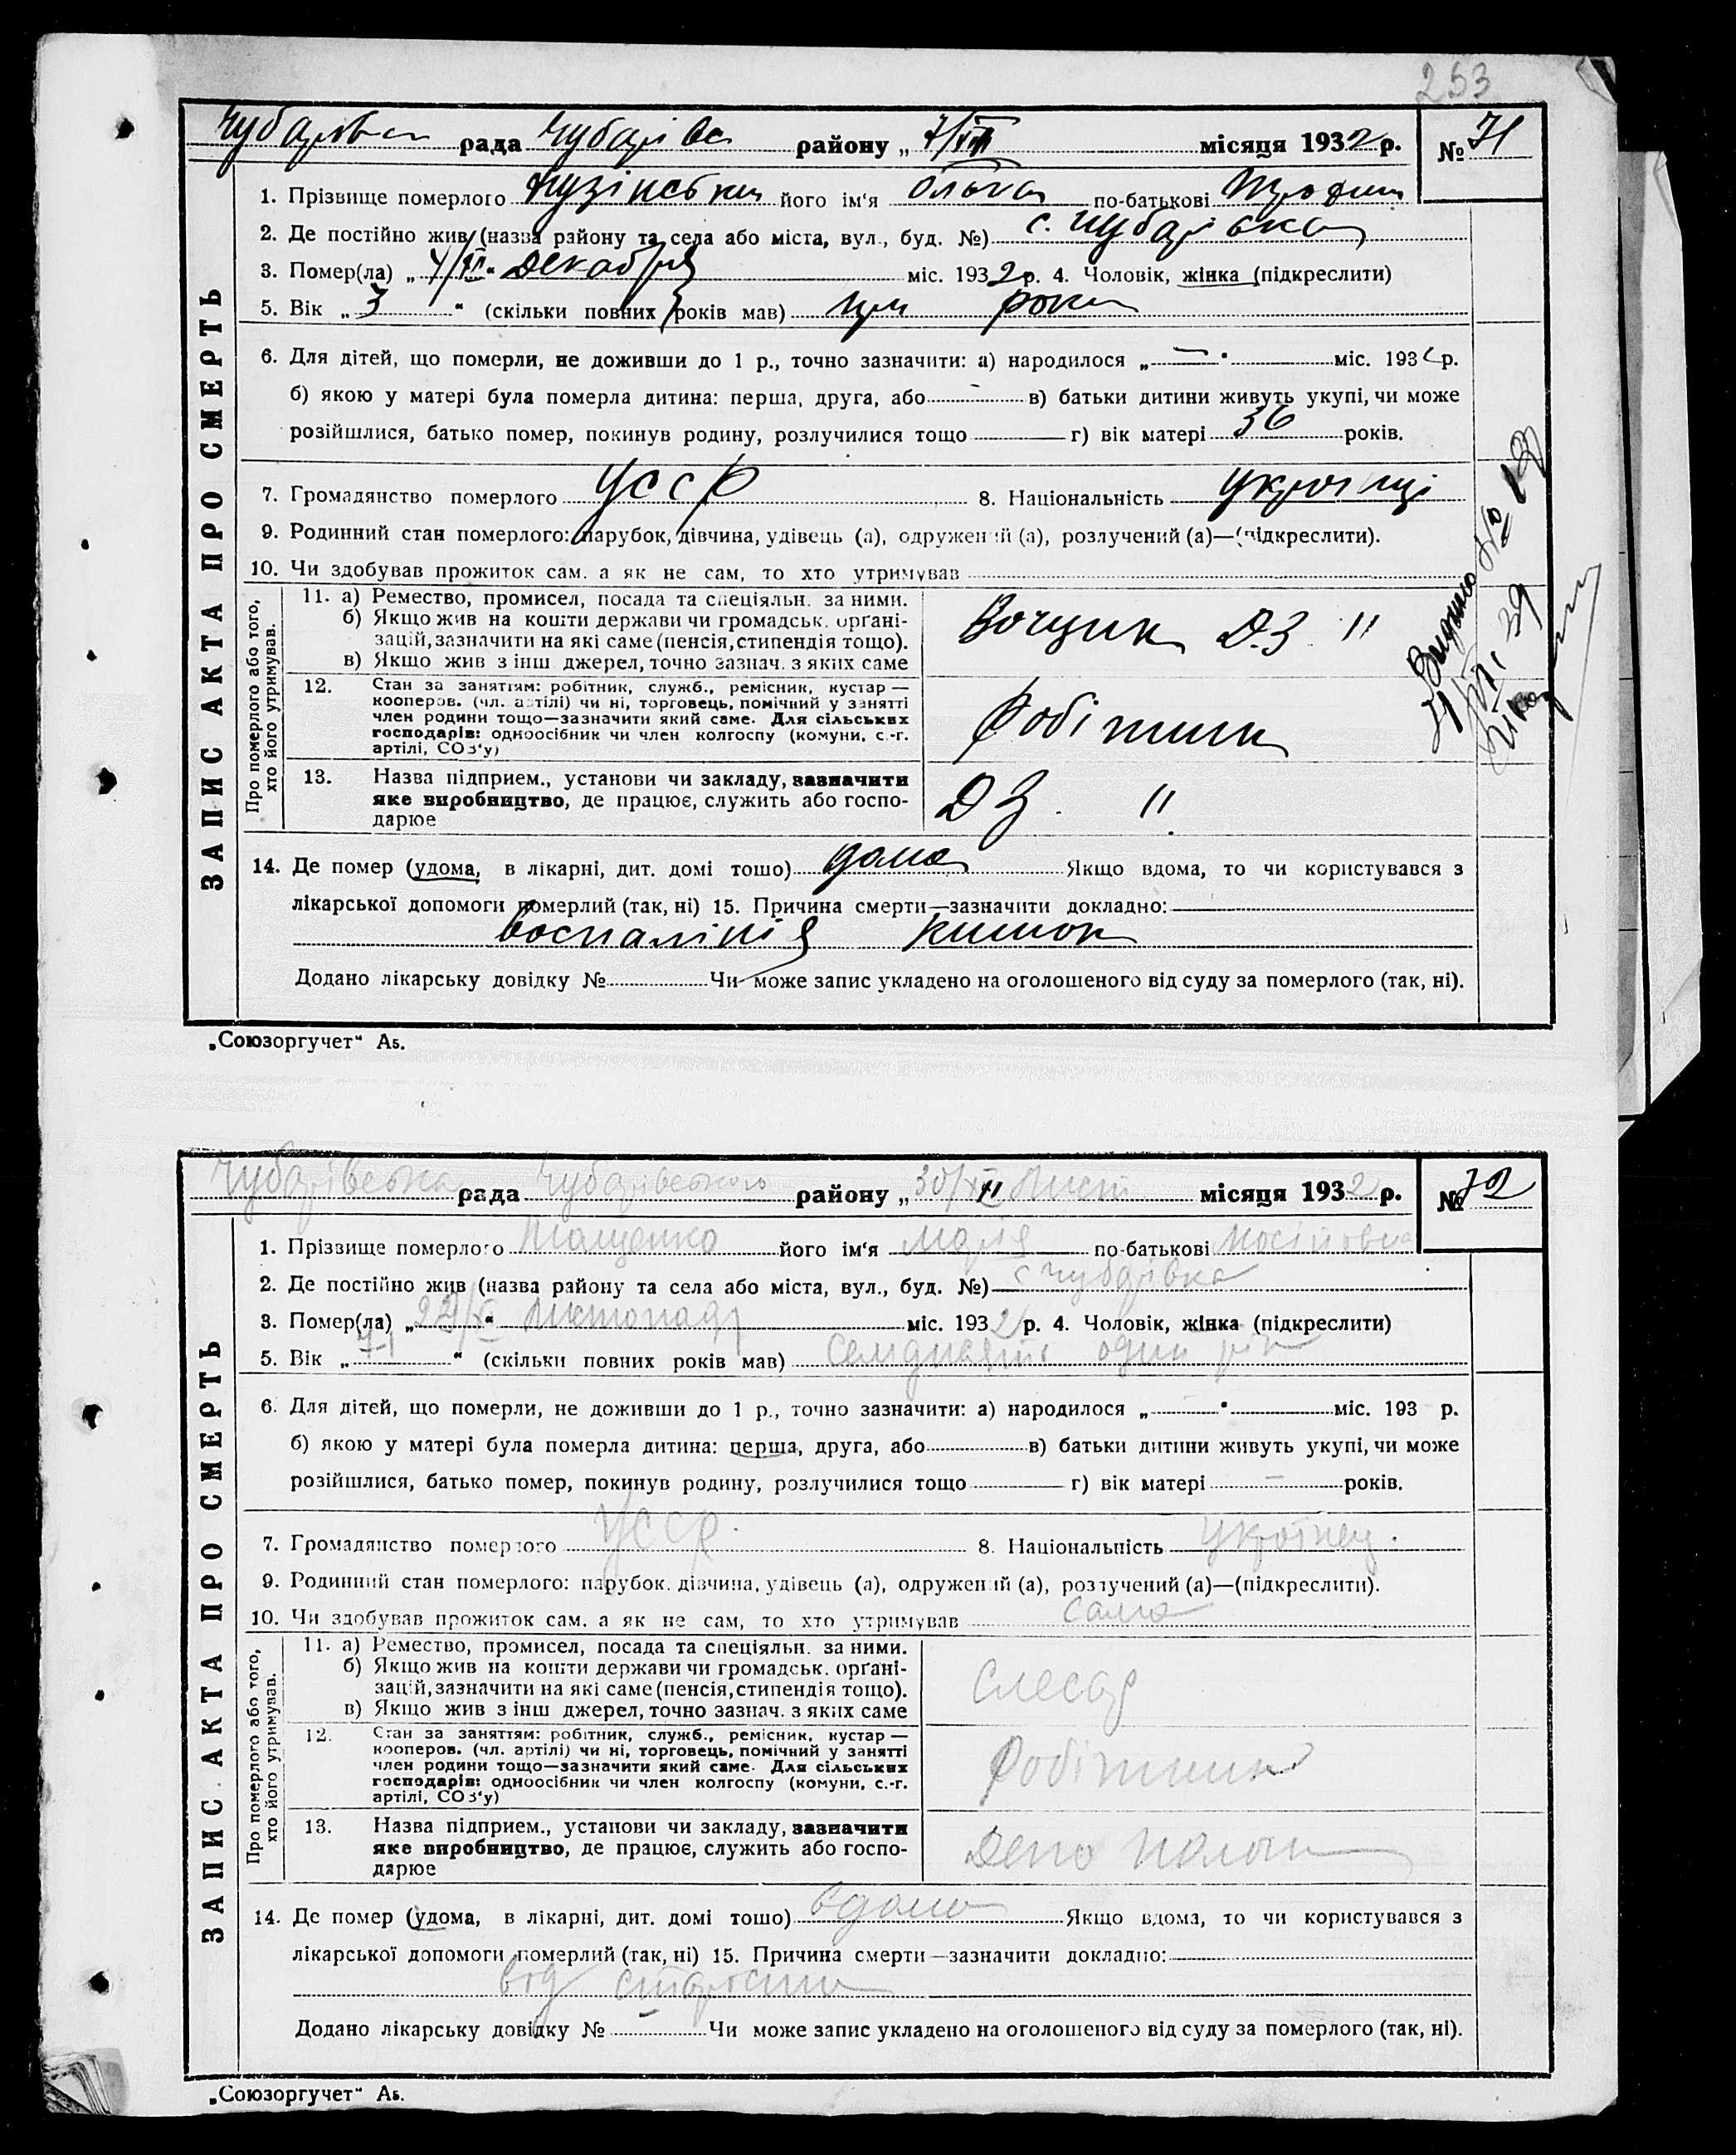 253
рада Чубарівс району „7/XII місяця 1932 р. № 71
ЗАПИС АКТА ПРО СМЕРТЬ
1. Прізвище померлого його ім‘я Ольга по-батькові
2. Де постійно жив (назва району та села або міста, вул., буд. №) с. Чубарівка
3. Помер(ла) „ “ Декабря міс. 1932 р. 4. Чоловік, жінка (підкреслити)
5. Вік „3“ (скільки повних років мав) три роки
6. Для дітей, що померли, не доживши до 1 р., точно зазначити: а) народилося „—“ міс. 193 р.
б) якою у матері була померла дитина: перша, друга, або — в) батьки дитини живуть укупі, чи може
розійшлися, батько помер, покинув родину, розлучилися тощо г) вік матері 36 років.
7. Громадянство померлого УССР 8. Національність
9. Родинний стан померлого: парубок, дівчина, удівець (а), одружений (а), розлучений (а)—(підкреслити).
10. Чи здобував прожиток сам. а як не сам, то хто утримував
Про померлого або того, хто його утримував.
11. а) Ремество, промисел, посада та спеціяльн. за ними.
б) Якщо жив на кошти держави чи громадськ. орґані-
зацій, зазначити на які саме (пенсія, стипендія тощо).
в) Якщо жив з інш джерел, точно зазнач. з яких саме
ДЗ "
12. Стан за заняттям: робітник, служб., ремісник, кустар —
кооперов. (чл. артілі) чи ні, торговець, помічний у занятті
член родини тощо—зазначити який саме. Для сільських
господарів: одноосібник чи член колгоспу (комуни, с.-г.
артілі, СОЗ‘у)
Робітник
13. Назва підприєм., установи чи закладу, зазначити
яке виробництво, де працює, служить або госпо-
дарює
ДЗ. "
14. Де помер (удома, в лікарні, дит. домі тощо) дома Якщо вдома, то чи користувався з
лікарської допомоги померлий (так, ні) 15. Причина смерти—зазначити докладно:
воспалінія кишок
Додано лікарську довідку № Чи може запис укладено на оголошеного від суду за померлого (так, ні).
Видано №
„Союзоргучет“ А5.
Чубарівська рада Чубарівського району „30/XI Лист місяця 1932 р. № 72
ЗАПИС АКТА ПРО СМЕРТЬ
1. Прізвище померлого його ім‘я Марія по-батькові
2. Де постійно жив (назва району та села або міста, вул., буд. №) с Чубарівка
3. Помер(ла) „29/XI“ Листопада міс. 1932 р. 4. Чоловік, жінка (підкреслити)
5. Вік „71“ (скільки повних років мав) Семдисять один рік
6. Для дітей, що померли, не доживши до 1 р., точно зазначити: а) народилося „ “ міс. 193 р.
б) якою у матері була померла дитина: перша, друга, або в) батьки дитини живуть укупі, чи може
розійшлися, батько помер, покинув родину, розлучилися тощо г) вік матері — років.
7. Громадянство померлого УССР. 8. Національність Українец.
9. Родинний стан померлого: парубок, дівчина, удівець (а), одружений (а), розлучений (а)—(підкреслити).
10. Чи здобував прожиток сам. а як не сам, то хто утримував сама
Про померлого або того, хто його утримував.
11. а) Ремество, промисел, посада та спеціяльн. за ними.
б) Якщо жив на кошти держави чи громадськ. орґані-
зацій, зазначити на які саме (пенсія, стипендія тощо).
в) Якщо жив з інш джерел, точно зазнач. з яких саме
Слесар
12. Стан за заняттям: робітник, служб., ремісник, кустар —
кооперов. (чл. артілі) чи ні, торговець, помічний у занятті
член родини тощо—зазначити який саме. Для сільських
господарів: одноосібник чи член колгоспу (комуни, с.-г.
артілі, СОЗ‘у)
Робітник
13. Назва підприєм., установи чи закладу, зазначити
яке виробництво, де працює, служить або госпо-
дарює
Депо
14. Де помер (удома, в лікарні, дит. домі тощо) вдома Якщо вдома, то чи користувався з
лікарської допомоги померлий (так, ні) 15. Причина смерти—зазначити докладно:
від старости
Додано лікарську довідку № Чи може запис укладено на оголошеного від суду за померлого (так, ні).
„Союзоргучет“ А5.